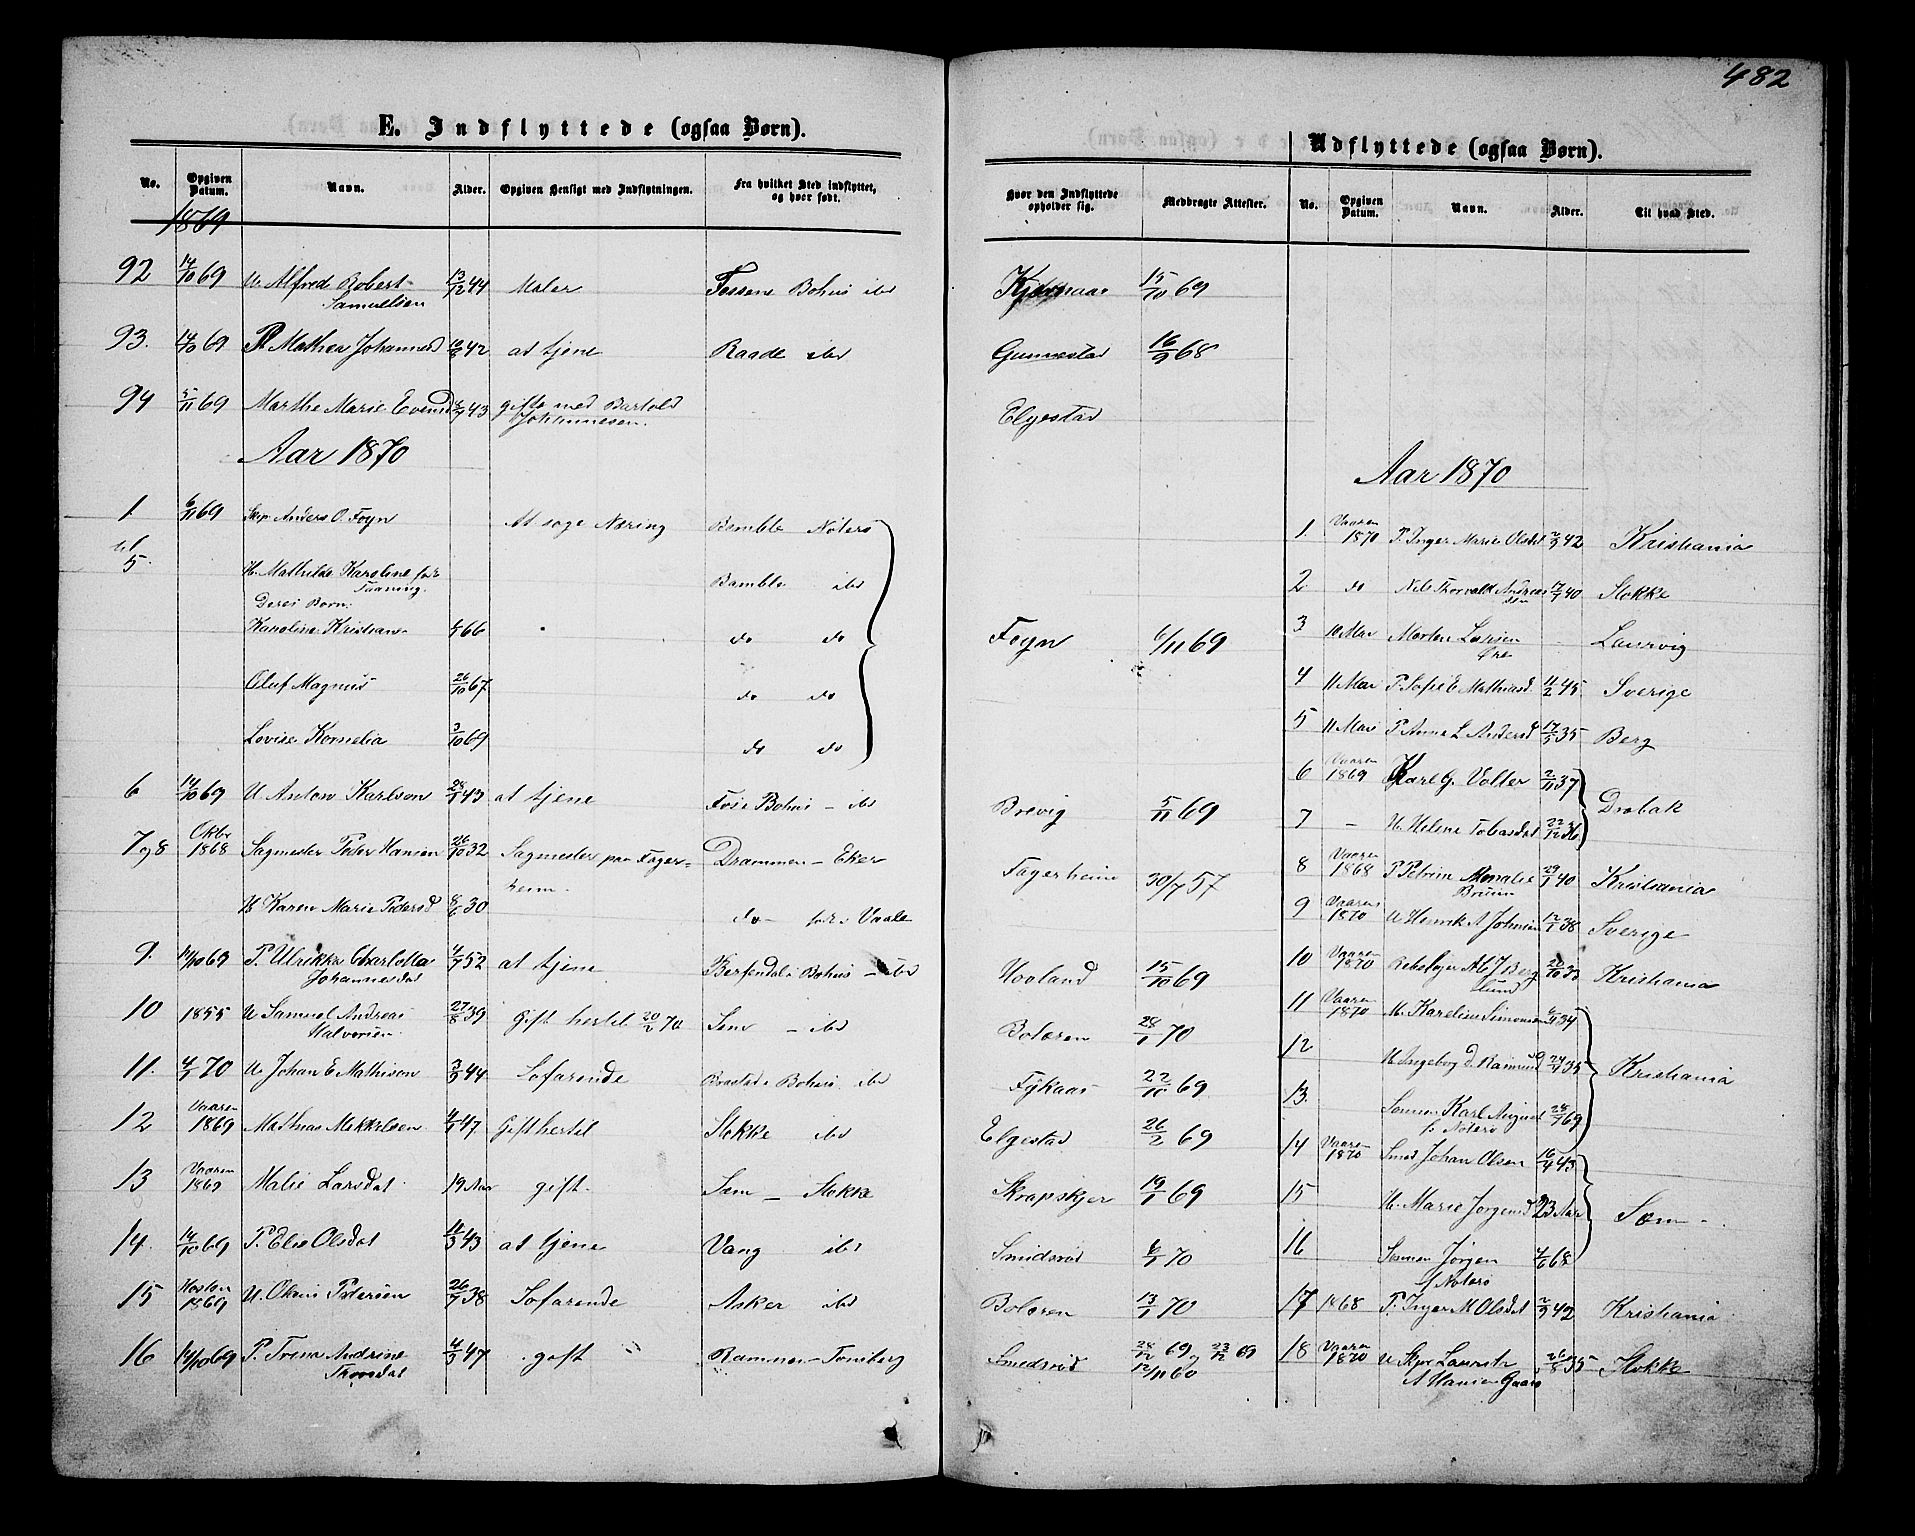 482
E. Indflyttede (ogsaa Børn).
No. Opgiven Datum. Navn. Alder. Opgiven Hensigt med Indflytningen. Fra hvilket Sted indflyttet, og hvor født.
1869
92 14/10 69 U. Alfred Robert Samuelsen 13/2 44 Maler Fossene Bohus ibd
93. 14/10 69 P. Mathea Johannesd 42 at tjene Raade ibd
94 5/11 69 Marthe Marie Evensd 43 gift med Bartold Johannesen.
Aar 1870
1. 6/11 69 Skip. Anders O. Foyn At søge Næring Bamble Nøterø
til
5. H. Mathilde Karoline født Taaning. Bamble ibd
Deres Børn:
Karoline Kristiane 66 do do
Oluf Magnus 26/10 67 do do
Lovise Kornelia 3/10 69 do do
6 14/10 69 U Anton Karlson 43 at tjene Foss Bohus – ibd
7 og 8 Oktbr 1868 Sagmester Peder Hansen 26/10 32 Sagmester paa Fagerheim. Drammen – Eker
H Karen Marie Pedersd 8/6 30 do – født i Vaale
9. 14/10 69 P. Ulrikke Charlotta Johannesdat 52 at tjene Berfendal i Bohus – ibd
10 1855 U Samuel Andreas Halvorsen 27/8 39 Gift hertil 20/2 70 Sem – ibd
11. 70 U. Johan E Mathisen 44 Søfarende Brastad i Bohus ibd
12 Vaaren 1869 Mathias Mikkelsen 47 Gift hertil Stokke ibd
13 Vaaren 1869 Malie Larsdat 19 Aar gift Sem – Stokke
14. 14/10 69 P. Else Olsdat 11/3 43 at tjene Vang ibd
15 Høsten 1869 U. Okaris Pedersen 38 Søfarende Asker ibd
16 14/10 69 P. Trine Andrine Thorsdat 4/3 47 gift Ramnes – Tønsberg
Hvor den Indflyttede opholder sig. Medbragte Attester.
Kjærnaas 15/10 69
Gunnestad 16/9 68
Elgestad
Foyn 6/11 69
Brevig 5/11 69
Fagerheim 30/7 57
Hovland 15/10 69
Bolæren 28/1 70
Fykaas 22/10 69
Elgestad 26/2 69
Skrapskjer 19/1 69
Smidsrød 70
Bolæren 13/1 70
Smidsrød 28/12 69 og 23/12 69
12/11 60
Udflyttede (ogsaa Børn).
No. Opgiven Datum. Navn. Alder. Til hvad Sted.
Aar 1870
1. Vaaren 1870 P. Inger Marie Olsdat 2/9 42 Kristiania
2. do Nils Thorvald Andreassen 40 Stokke
3 10 Mai Morten Larsen Øre Laurvig
4 11 Mai P Sofie E Mathiasd. 11/2 45 Sverige
5 11 Mai P Anne L Andersd 17/5 35 Berg
6 Vaaren 1869 Karl G. Volter 2/11 37 Drøbak
7 – H. Helene Tobiasdat 22/12 36
8 Vaaren 1868 P Petrine Amalie Bruun 40 Kristiania
9 Vaaren 1870 U Henrik A Johnsen 38 Sverige
10 Vaaren 1870 Rebslager Berg Lund 20/10 Kristiania
11 Vaaren 1870 M. Karelius Simonsen 34 Kristiania
12 H Ingeborg 35
13. Sønnen Karl August 69
f. Nøterø
14 Vaaren 1870 Smed Johan Olsen 16/4 43 Sæm –.
15 H. Marie Jørgensd 23 Aar
16 Sønnen Jørgen 68
f Nøterø
17 1868 P. Inger M Olsdat 2/9 42 Kristiania
18 Vaaren 1870 U Skpr Lauritz A Hansen Gaasø 26/8 35 Stokke